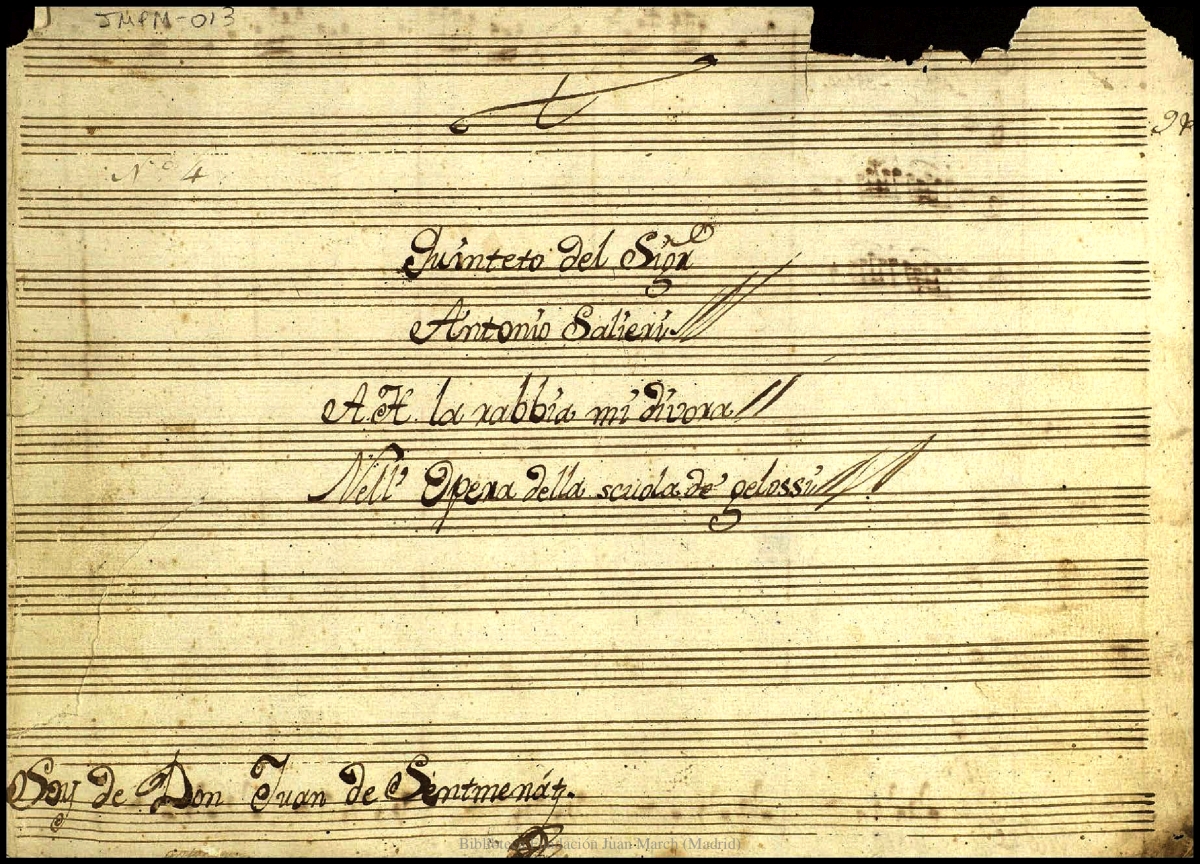 JMPM-013
Nº 4
Quinteto del Sigr
Antonio Salieri
A.H. la rabbia mi divora
Nell' Opera della scuola de gelossi
Soy de Don Juan de Sentmenát.
Biblioteca Fundación Juan March (Madrid)